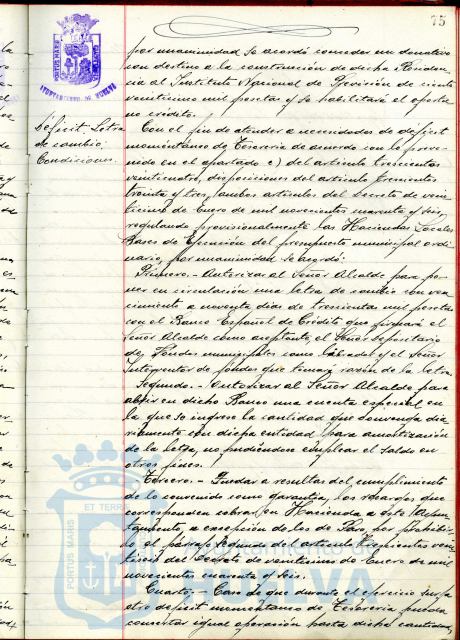 75
PORTUS MARIS
AYUNTAMIENTO DE HUELVA
por unanimidad se acordó conceder un donativo
con destino a la construcción de dicha Residen-
cia al Instituto Nacional de Previsión de ciento
veinticinco mil pesetas y se habilitará el oporta
no credito.
Déficit. Letra
de cambio.
Condiciones.
Con el fin de atender a necesidades de déficit
momentáneo de Tesorería de acuerdo con lo preve-
nido en el apartado c) del artículo trescientos
veinticuatro, disposiciones del artículo trescientos
treinta y tres, ambos artículos del Decreto de vein-
ticinco de Enero de mil novecientos cuarenta y seis,
regulando provisionalmente las Haciendas Locales
Bases de Ejecución del presupuesto municipal ordi-
nario, por unanimidad se acordó:
Primero.- Autorizar al Señor Alcalde para po-
ner en circulación una letra de cambio con ven-
cimiento a noventa días de trescientas mil pesetas
con el Banco Español de Crédito que firmará el
Señor Alcalde como aceptante, el Señor Depositario
de Fondos municipales como librador y el Señor
Interventor de fondos que tomará razón de la letra.
Segundo.- Autorizar al Señor Alcalde para
abrir en dicho Banco una cuenta especial en
la que se ingrese la cantidad que convenga dia
riamente con dicha entidad para amortización
de la letra, no pudiéndose emplear el saldo en
otros fines.
Tercero.- Quedar a resultas del cumplimiento
de lo convenido como garantía, los recargos que
corresponden cobrar en Hacienda a este Ayun-
tamiento, a excepción de los de Paro, por prohibir-
lo el párrafo segundo del artículo trescientos vein
del Decreto de veinticinco de Enero de mil
novecientos cuarenta y seis.
Cuarto.- Caso de que durante el ejercicio surja
otro déficit momentáneo de Tesorería pueda
concertar igual operación hasta dicha cantidad,
PORTUS MARIS
ET TERRAE
Ayuntamiento de
HUELVA